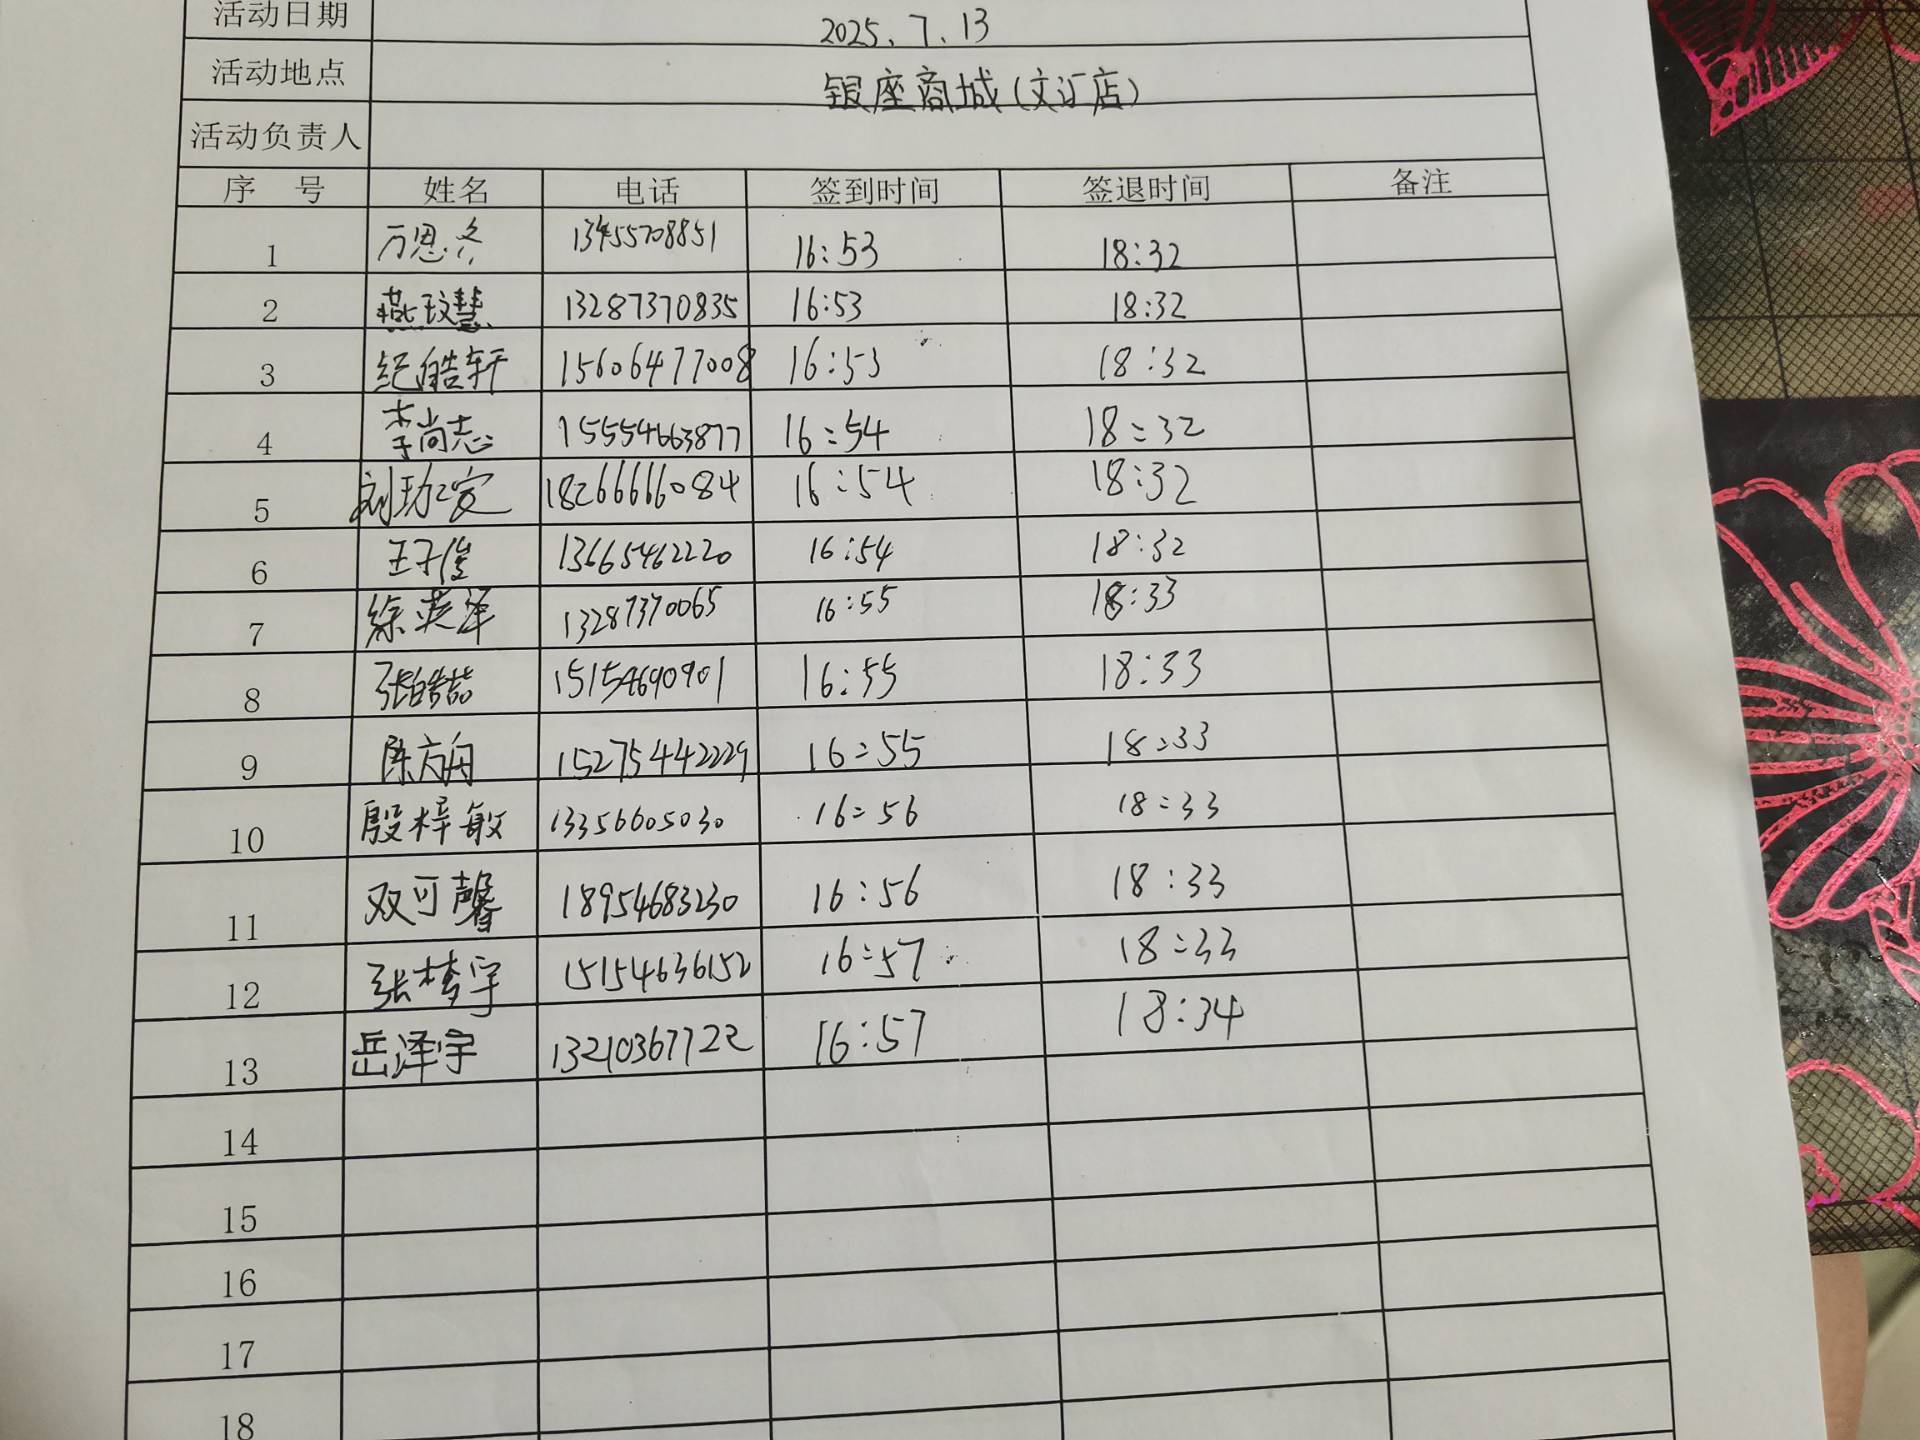 活动日期 2025.7.13
活动地点 银座商城(文汇店)
活动负责人
序 号 姓名 电话 签到时间 签退时间 备注
1 万恩冬 13455708851 16:53 18:32
2 燕玟慧 13287370835 16:53 18:32
3 纪皓轩 15606477008 16:53 18:32
4 李尚志 15554663877 16:54 18:32
5 刘玏安 18266666084 16:54 18:32
6 王子俊 13665462220 16:54 18:32
7 徐英泽 13287370065 16:55 18:33
8 张皓喆 15154690901 16:55 18:33
9 陈方舟 15275442229 16:55 18:33
10 殷梓敏 13356605030 16:56 18:33
11 双可馨 18954683230 16:56 18:33
12 张梦宇 15154636152 16:57 18:33
13 岳泽宇 13210367722 16:57 18:34
14
15
16
17
18